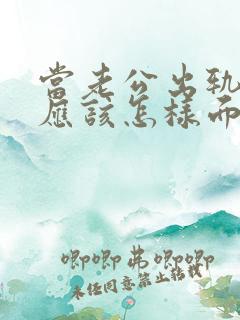 當老公出軌
應該怎樣而
唧唧弗唧唧
未经同意禁止转载